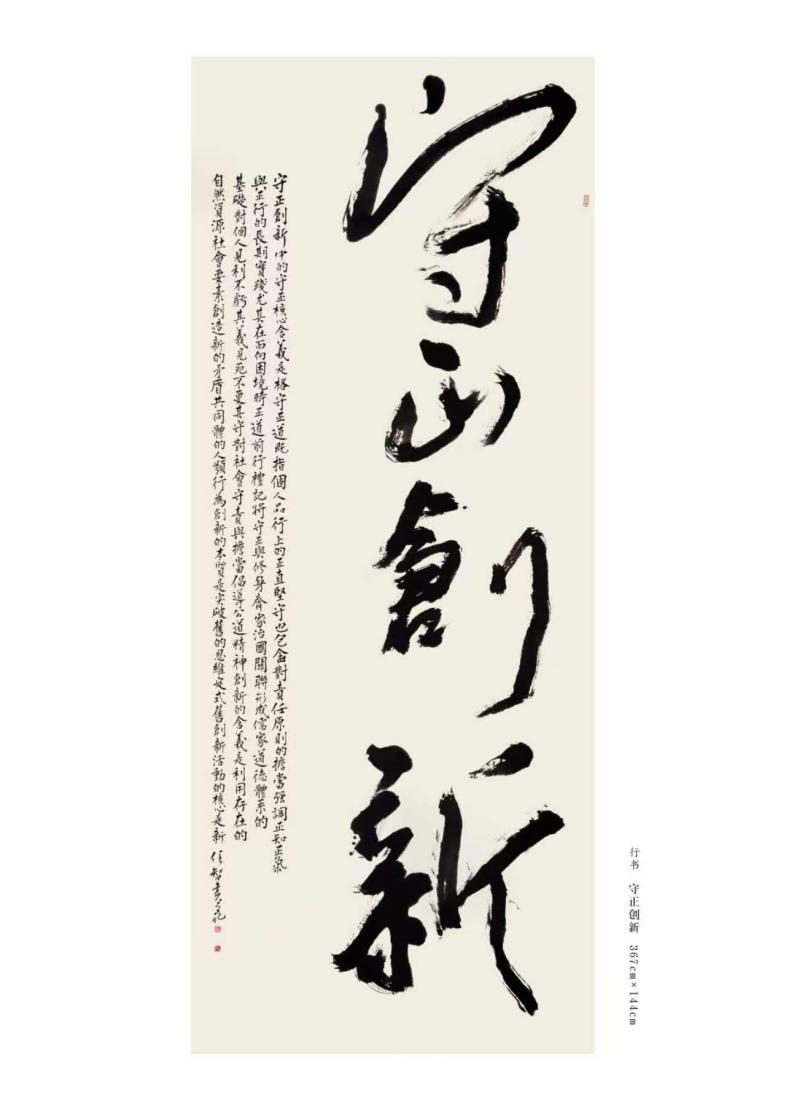 守正創新
守正創新中的守正核心含義是恪守正道既指個人品行上的正直堅守也包含對責任原則的擔當強調正知正氣
與正行的長期實踐尤其在面向困境時正道前行禮記將守正與修身齊家治國關聯形成儒家道德體系的
基礎對個人見利不虧其義見死不更其守對社會守責與擔當倡導公道精神創新的含義是利用存在的
自然資源社會要素創造新的矛盾共同體的人類行為創新的本質是突破舊的思維定式舊創新活動的核心是新
任智書
行书 守正创新 367cm×144cm